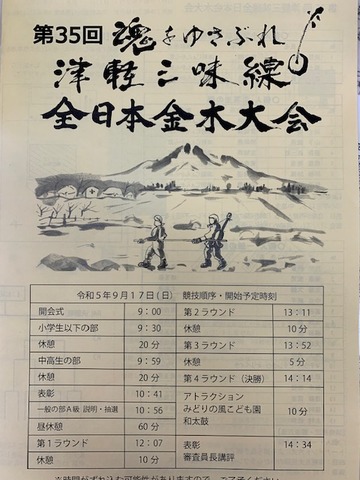 第35回 魂をゆさぶれ
津軽三味線
全日本金木大会
令和5年9月17日(日) 競技順序・開始予定時刻
開会式 9:00
小学生以下の部 9:30
休憩 20分
中高生の部 9:59
休憩 20分
表彰 10:41
一般の部A級 説明・抽選 10:56
昼休憩 60分
第1ラウンド 12:07
休憩 10分
第2ラウンド 13:11
休憩 10分
第3ラウンド 13:52
休憩 5分
第4ラウンド(決勝) 14:14
アトラクション
みどりの風こども園 10分
和太鼓
表彰 14:34
審査員長講評
※時間がずれ込む可能性がありますので、ご了承ください